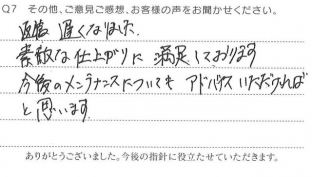 Q7 その他、ご意見ご感想、お客様の声をお聞かせください。
返信 遅くなりました。
素敵な仕上がりに 満足しております
今後のメンテナンスについても アドバイスいただければ
と思います
ありがとうございました。今後の指針に役立たせていただきます。